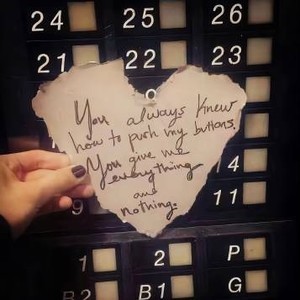 24 25 26
21 22 23
9
You always knew
how to push my buttons.
You give me
everything
and
nothing.
14
9 11
1 2 P
B B1 G